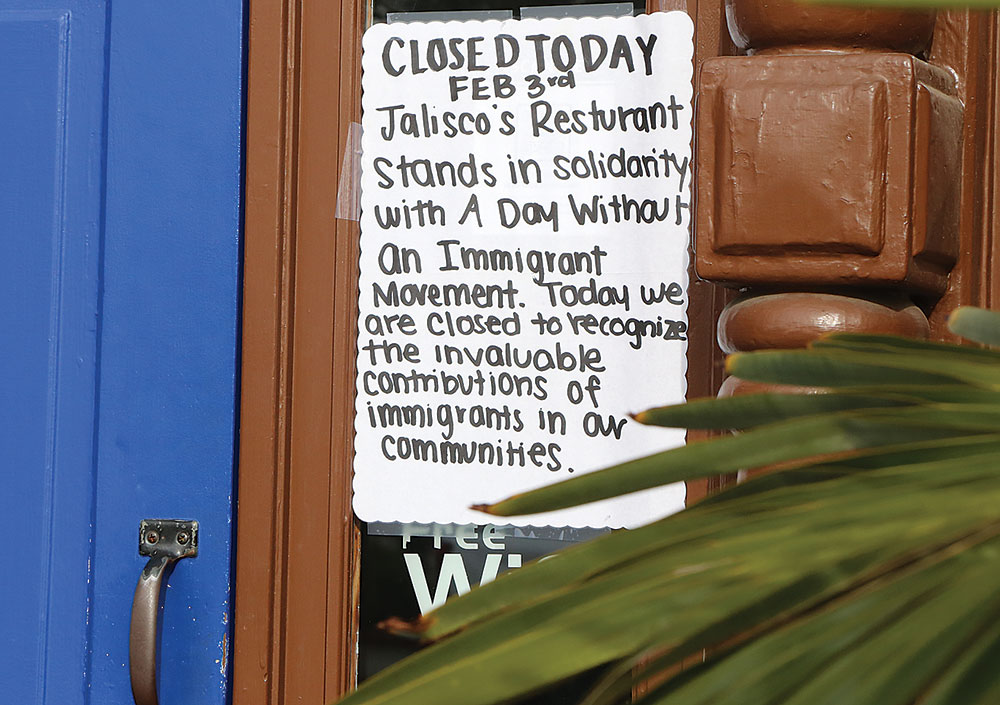 CLOSED TODAY
FEB 3rd
Jalisco's Resturant
Stands in solidarity
with A Day Without
an Immigrant
Movement. Today we
are closed to recognize
the invaluable
contributions of
immigrants in our
communities.
Free